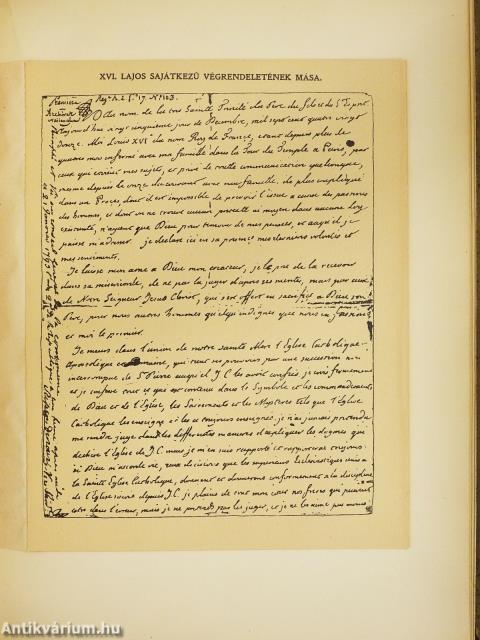 XVI. LAJOS SAJÁTKEZŰ VÉGRENDELETÉNEK MÁSA.
Au nom de la très Sainte Trinité du Père du fils et du St Esprit
aujourd'hui vingt cinquieme jour de Decembre, mil sept cent quatre vingt
douze. Moi Louis XVI du nom Roy de France, etant depuis plus de
quatre mois enfermé avec ma famille dans la Tour du Temple a Paris, par
ceux qui etoient mes sujets, et privé de toute communication quelconque,
meme depuis le onze du courant avec ma famille. de plus impliqué
dans un Procès, dont il est impossible de prevoir l'issue a cause des passions
des hommes, et dont on ne trouve aucun pretexte ni moyen dans aucune Loy
existante, n'ayant que Dieu pour temoin de mes pensées, et auquel je
puisse m'adresser. je declare ici en sa presence mes dernieres volontés et
mes sentiments.
Je laisse mon ame a Dieu mon createur, je le prie de la recevoir
dans sa misericorde, de ne pas la juger d'apres ses merites, mais par ceux
de Notre Seigneur Jesus Christ, qui s'est offert en sacrifice a Dieu son
Pere, pour nous autres hommes qu'elqu'indignes que nous en fussions,
et moi le premier.
Je meurs dans l'union de notre sainte Mere l'Eglise Catholique
Apostolique et Romaine, qui tient ses pouvoirs par une succession non
interrompue de St Pierre auquel J.C. les avoit confiés. je crois fermement
et je confesse tout ce qui est contenu dans le Symbole et les commandements
de Dieu et de l'Eglise, les Sacrements et les Mysteres tels que l'Eglise
Catholique les enseigne et les a toujours enseignés. je n'ai jamais pretendu
me rendre juge dans les differentes manieres d'expliquer les dogmes qui
dechire l'Eglise de J.C. mais je m'en suis rapporté et rapporterai toujours
si Dieu m'accorde vie, aux decisions que les superieurs Ecclesiastiques unis a
la Sainte Eglise Catholique, donnent et donneront conformement a la discipline
de l'Eglise suivie depuis J.C. je plains de tout mon coeur nos freres qui peuvent
etre dans l'erreur, mais je ne pretends pas les juger, et je ne les aime pas moins
Antikvárium.hu